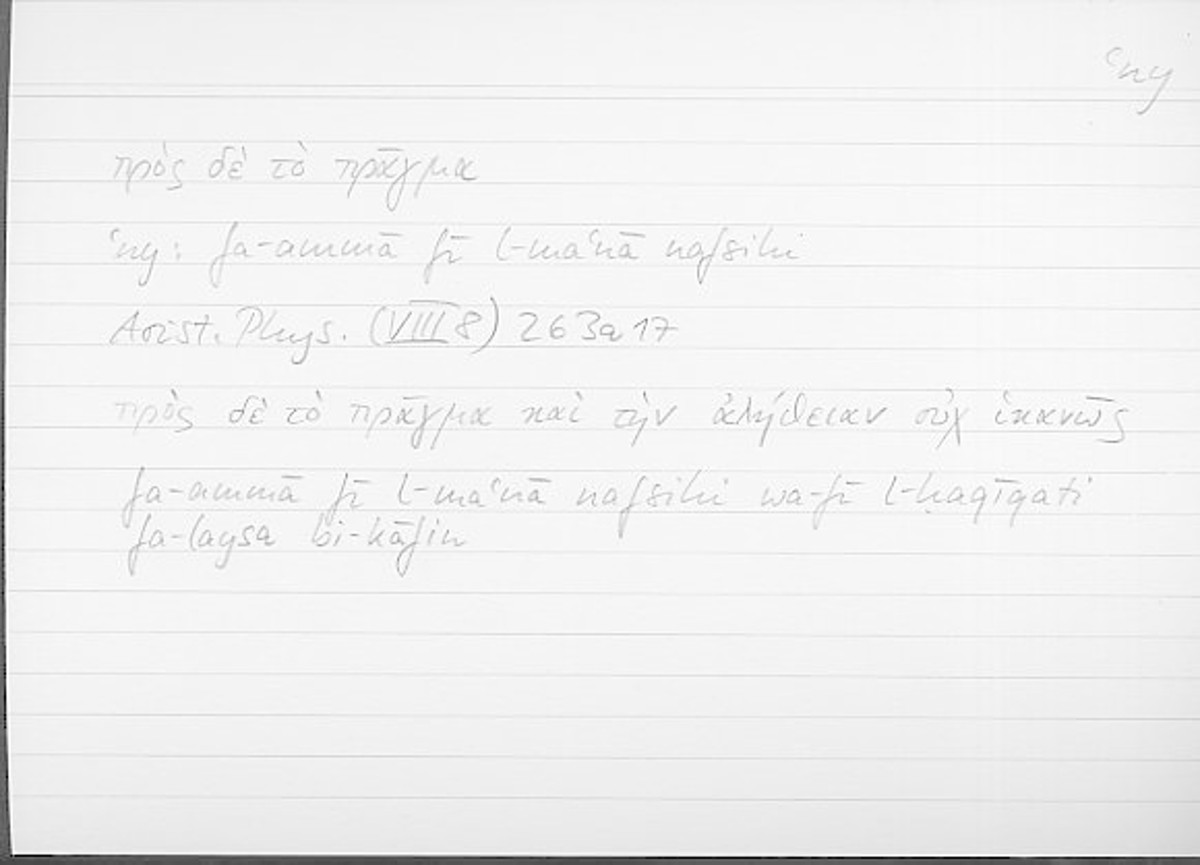 ʿny
πρὸς δὲ τὸ πρᾶγμα
ʿny: fa-ammā fī l-maʿnā nafsihi
Arist. Phys. (VIII 8) 263a17
πρὸς δὲ τὸ πρᾶγμα καὶ τὴν ἀλήθειαν οὐχ ἱκανῶς
fa-ammā fī l-maʿnā nafsihi wa-fī l-ḥaqīqati
fa-laysa bi-kāfin